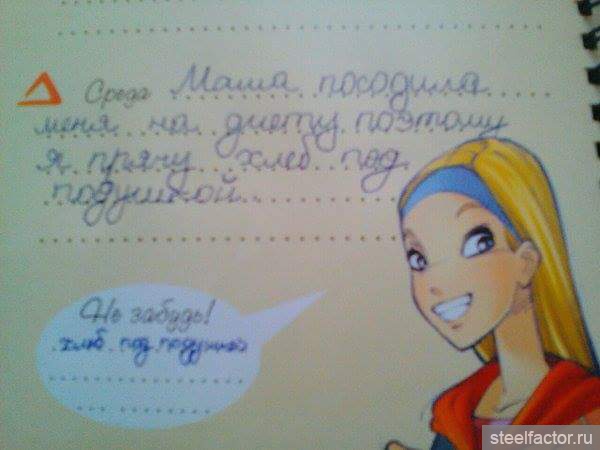 Среда Мама посодила
меня на диету поэтому
я прячу хлеб под
подушкой
Не забудь!
хлеб под подушкой
steelfactor.ru